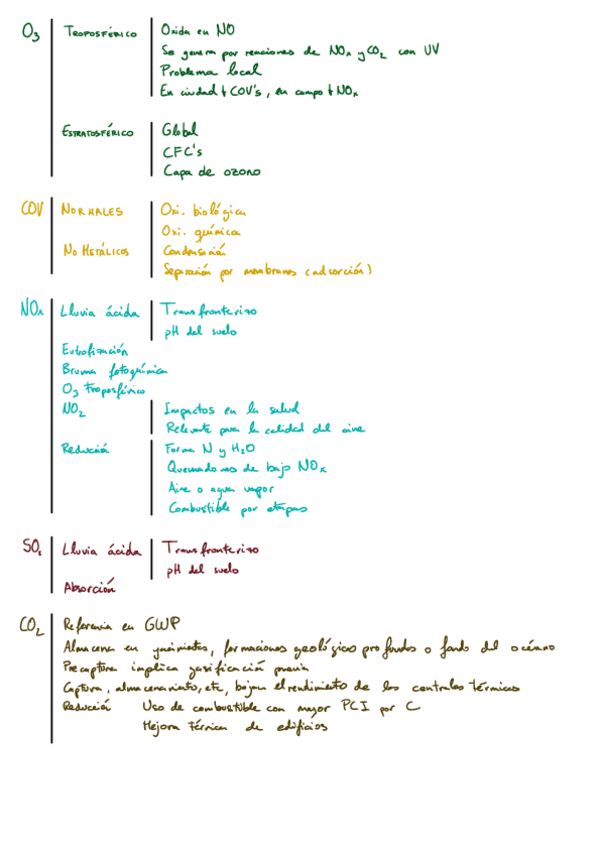 O3 TROPOSFÉRICO Oxida en NO
Se genera por reacciones de NOx y CO2 con UV
Problema local
En ciudad ↑ COV's, en campo ↑ NOx
ESTRATOSFÉRICO Global
CFC's
Capa de ozono
COV NORMALES Oxi. biológica
Oxi. química
NO METÁLICOS Condensación
Separación por membranas (adsorción)
NOx Lluvia ácida Transfronterizo
pH del suelo
Eutrofización
Bruma fotoquímica
O3 Troposférico
NO2 Impactos en la salud
Relevante para la calidad del aire
Reducción Forma N y H2O
Quemadores de bajo NOx
Aire o agua vapor
Combustible por etapas
SO2 Lluvia ácida Transfronterizo
pH del suelo
Absorción
CO2 Referencia en GWP
Almacena en yacimientos, formaciones geológicas profundas o fondo del océano
Precaptura implica gasificación previa
Captura, almacenamiento, etc, bajan el rendimiento de las centrales térmicas
Reducción Uso de combustible con mayor PCI por C
Mejora Térmica de edificios